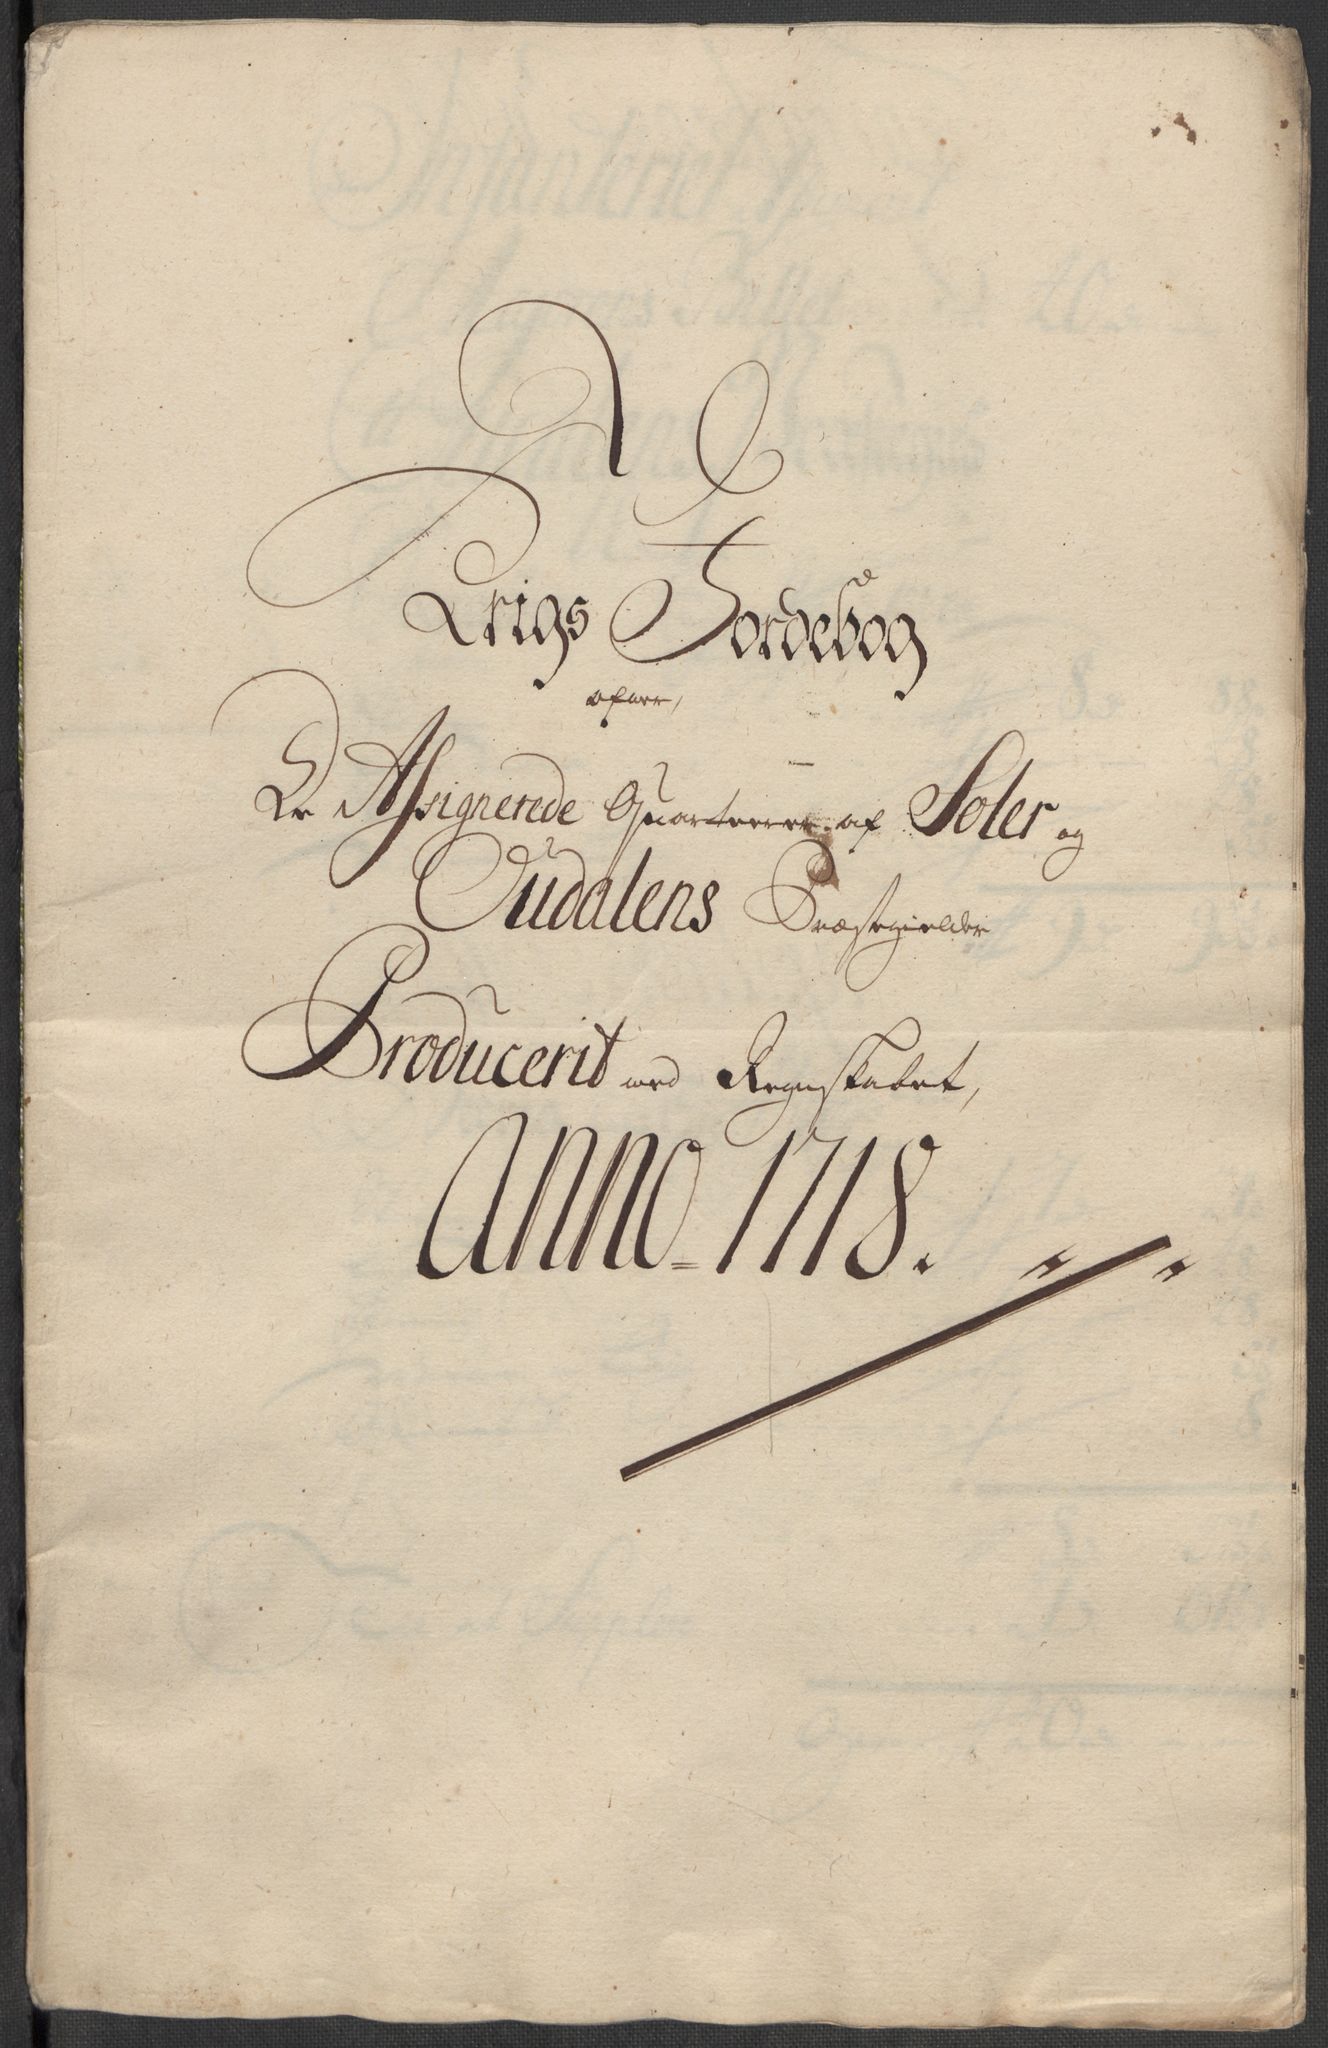 Krigs Jordebog
ofver,
De Assignerede Quarterer af Soler og
Oudalens Præstegielder
Producerit med Regnskabet,
Anno = 1718.